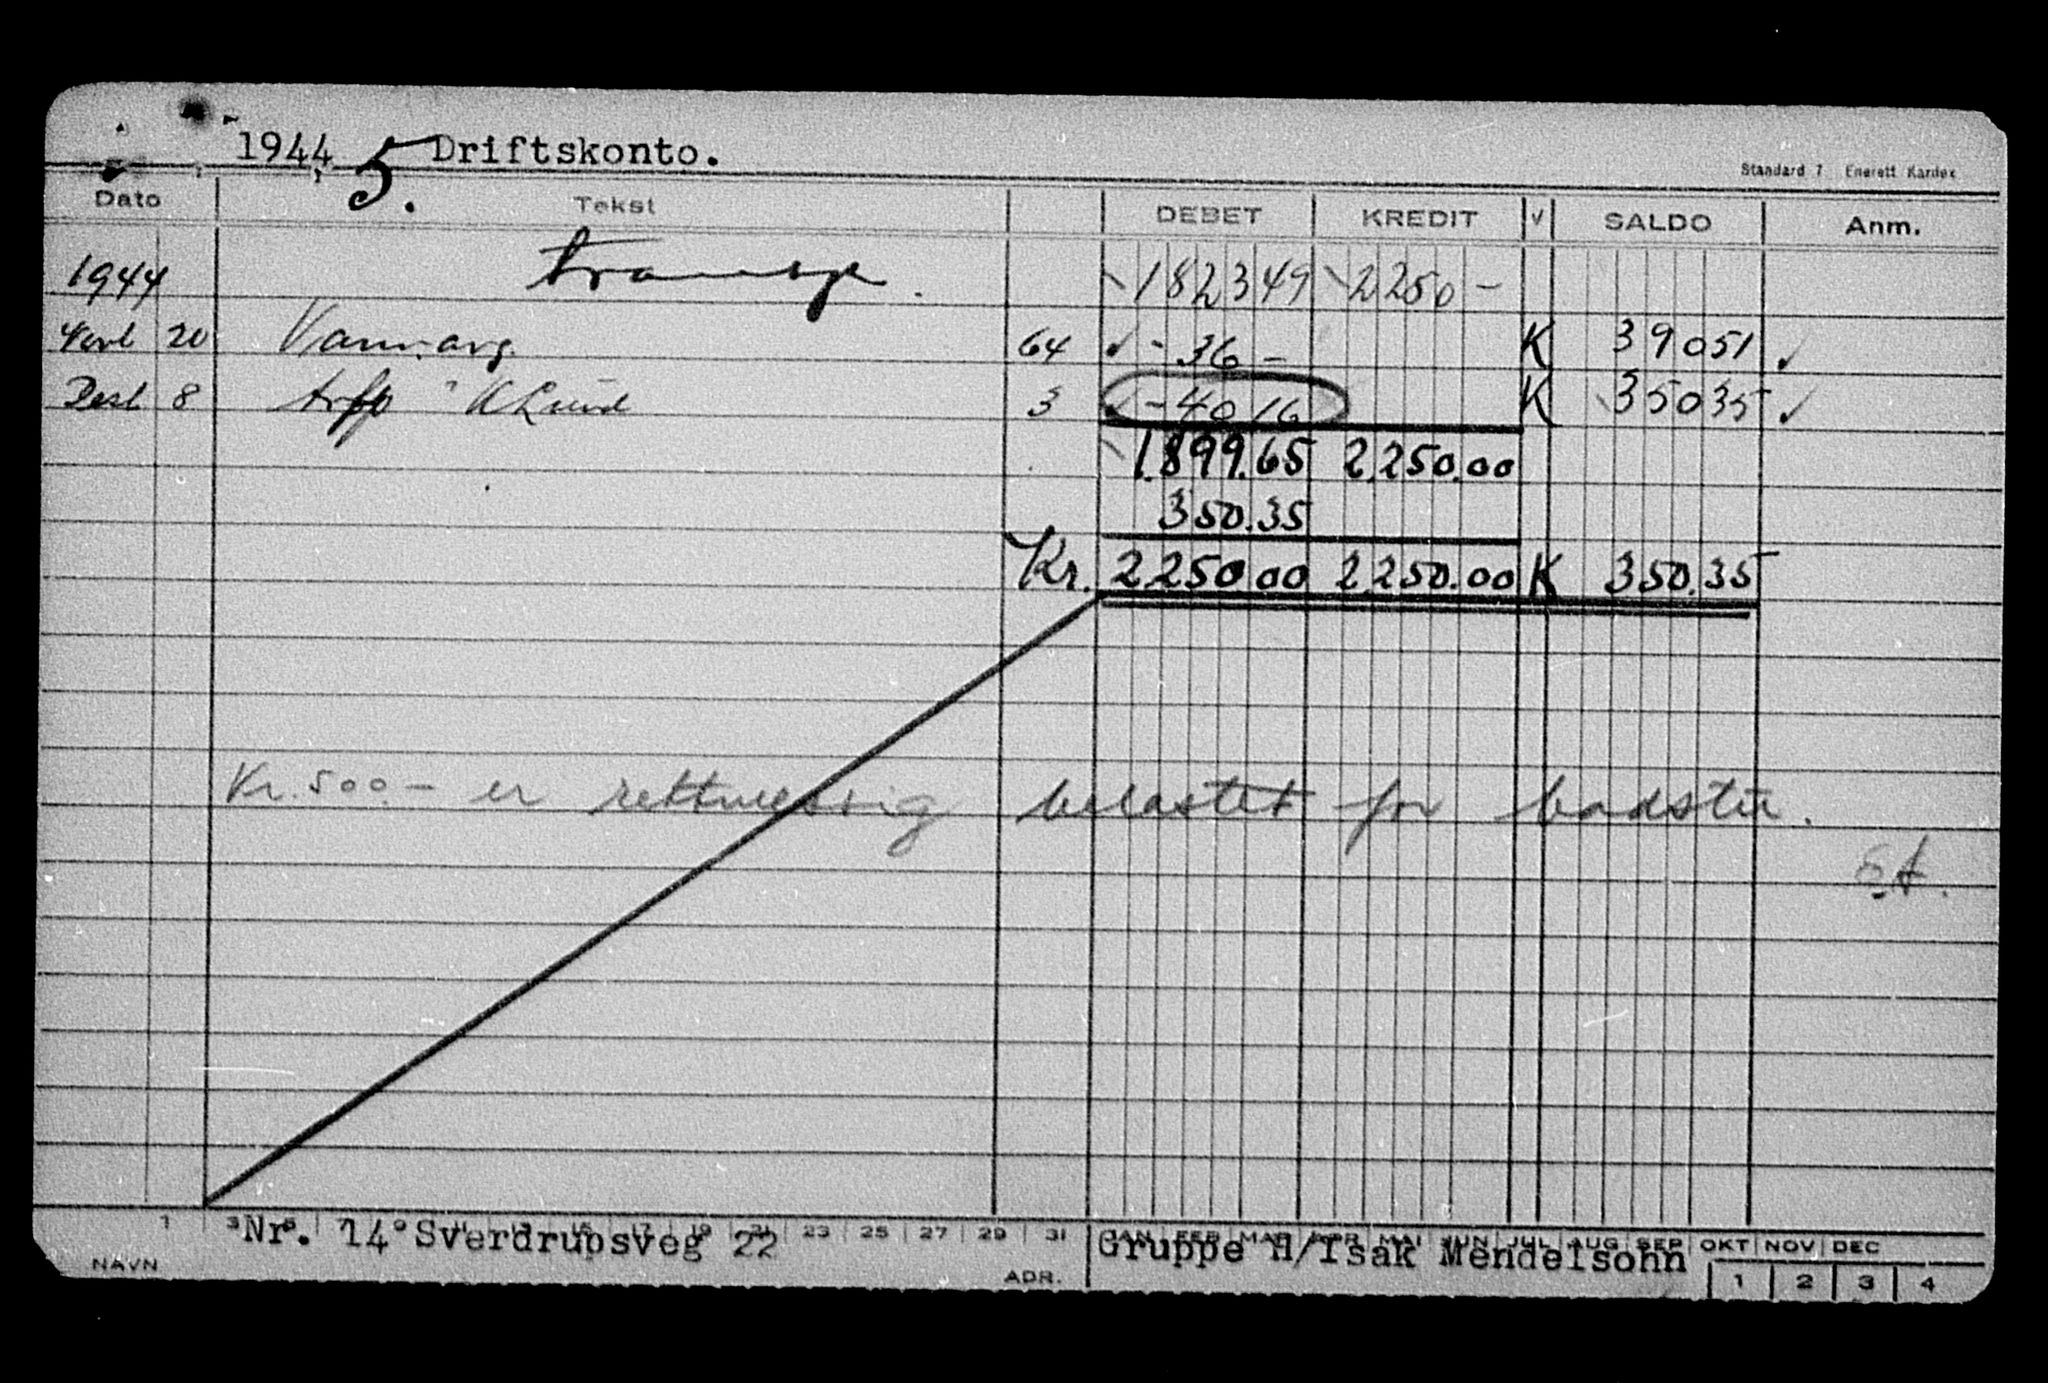 1944, 5. Driftskonto.
Standard 7 Enerett Kardex
Dato Tekst DEBET KREDIT V SALDO Anm.
1944 transp. 1823 49 2250 -
20 Vann.avg. 64 - 36 - K 390 51
Des. 8 K Lund 3 - 40 16 K 350 35
1.899.65 2.250.00
350.35
Kr. 2250.00 2.250.00 K 350.35
Kr. 500.- er rettmessig belastet for badstu.
1 3 5 7 9 11 13 15 17 19 21 23 25 27 29 31 JAN FEB MAR APR MAI JUN JUL AUG SEP OKT NOV DEC
Nr. 14° Sverdrupsveg 22 Gruppe H/Isak Mendelsohn
NAVN ADR. 1 2 3 4